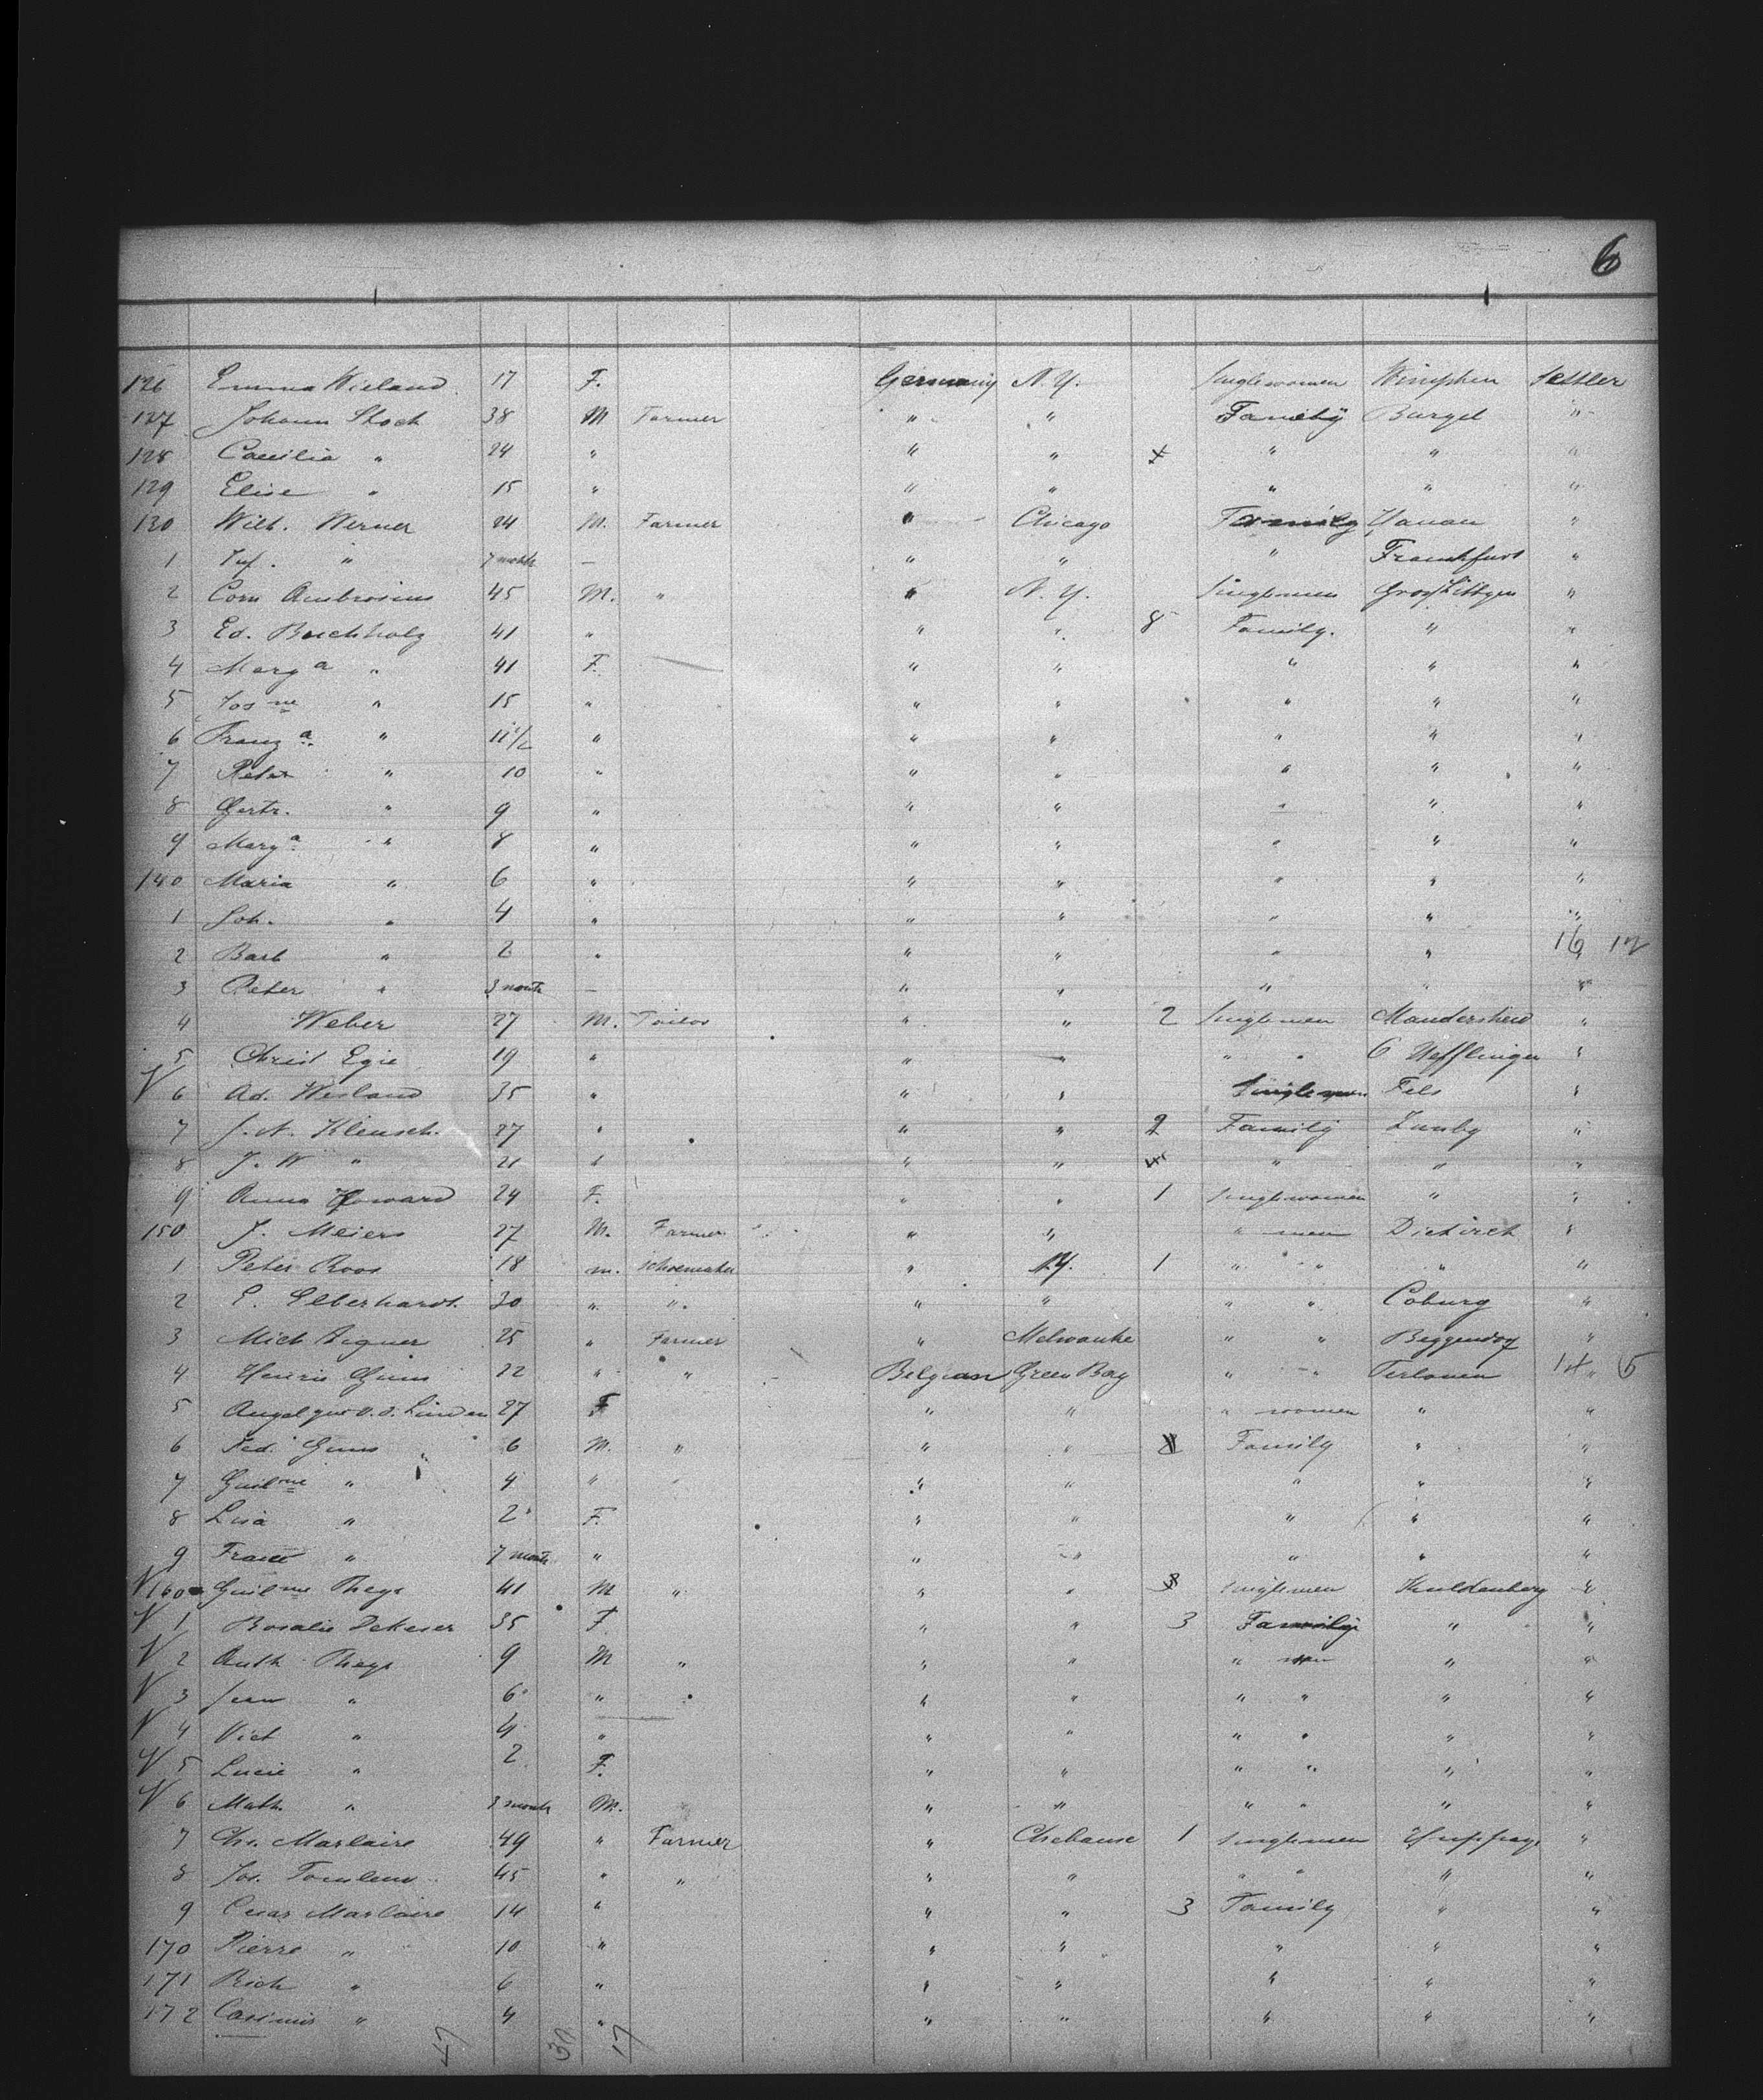 6
126 Emma Wieland 17 F. Germany N.Y. Singlewomen Wimphen Settler
127 Johann Stock 38 M Farmer " " Family Burgel "
128 " 24 " " " " " "
129 Elise " 15 " " " " " "
130 Wilh. Werner 24 M. Farmer " Chicago Family Hanau "
1 Inf. " 7 month — " " " Frankfurt "
2 Corn Ambrosius 45 M. " " N.Y. Singlemen Gross Littgen "
3 Ed. Buchholz 41 " " " 8 Family. " "
4 Marg a " 41 F. " " " " "
5 Jos ne " 15 " " " " " "
6 Franz a " 11 1/2 " " " " " "
7 Peter " 10 " " " " " "
8 Gertr. " 9 " " " " " "
9 Marg a " 8 " " " " " "
140 Maria " 6 " " " " " "
1 Joh. " 4 " " " " " "
2 Barb " 2 " " " " " " 16 17
3 Peter " 3 month — " " " " "
4 Weber 27 M. Tailor " " 2 Singlemen Manderscheid "
5 Christ Egie 19 " " " " " "
6 Ad. Weiland 35 " " " Singlemen Fels "
7 J. N. Kleusch. 27 " " " 2 Family "
8 J. W " 21 " " " " " "
9 Anna Howard 24 F. " " 1 Singlewomen " "
150 J. Meiers 27 M. Farmer " " " men Diekirch "
1 Peter Roos 18 m. Schoemaker " N.Y. 1 " " " "
2 E. Elberhardt. 30 " " " " " " Coburg "
3 Mich Aigner 25 " Farmer " Melwauke " " Beggendorf "
4 Henrie Guns 22 " " Belgian Green Bay " " 14 " 5
5 v. d. Linden 27 F " " " women " "
6 Fed. Guns 6 M. " " " Family " "
7 Guil me " 4 " " " " " "
8 Lisa " 2 F. " " " " "
9 " 7 month " " " " " "
160 Guil me Theys 41 M " " " 3 Singlemen Huldenberg "
1 Rosalie Dekeser 35 F. " " 3 Family " "
2 Anth Theys 9 M " " " " men " "
3 Jean " 6 " " " " " " " "
4 Vict " 4 " " " " " " "
5 Lucie " 2 F. " " " " " "
6 Math. " 3 month M. " " " " " "
7 Chs. Marlaire 49 " Farmer " Chebanse 1 Singlemen "
8 Jos. 45 " " " " " " " "
9 Marlaire 14 " " " 3 Family " "
170 Pierre " 10 " " " " " "
171 Rich " 6 " " " " " "
172 Casimir " 4 " " " " " "
47 30 17